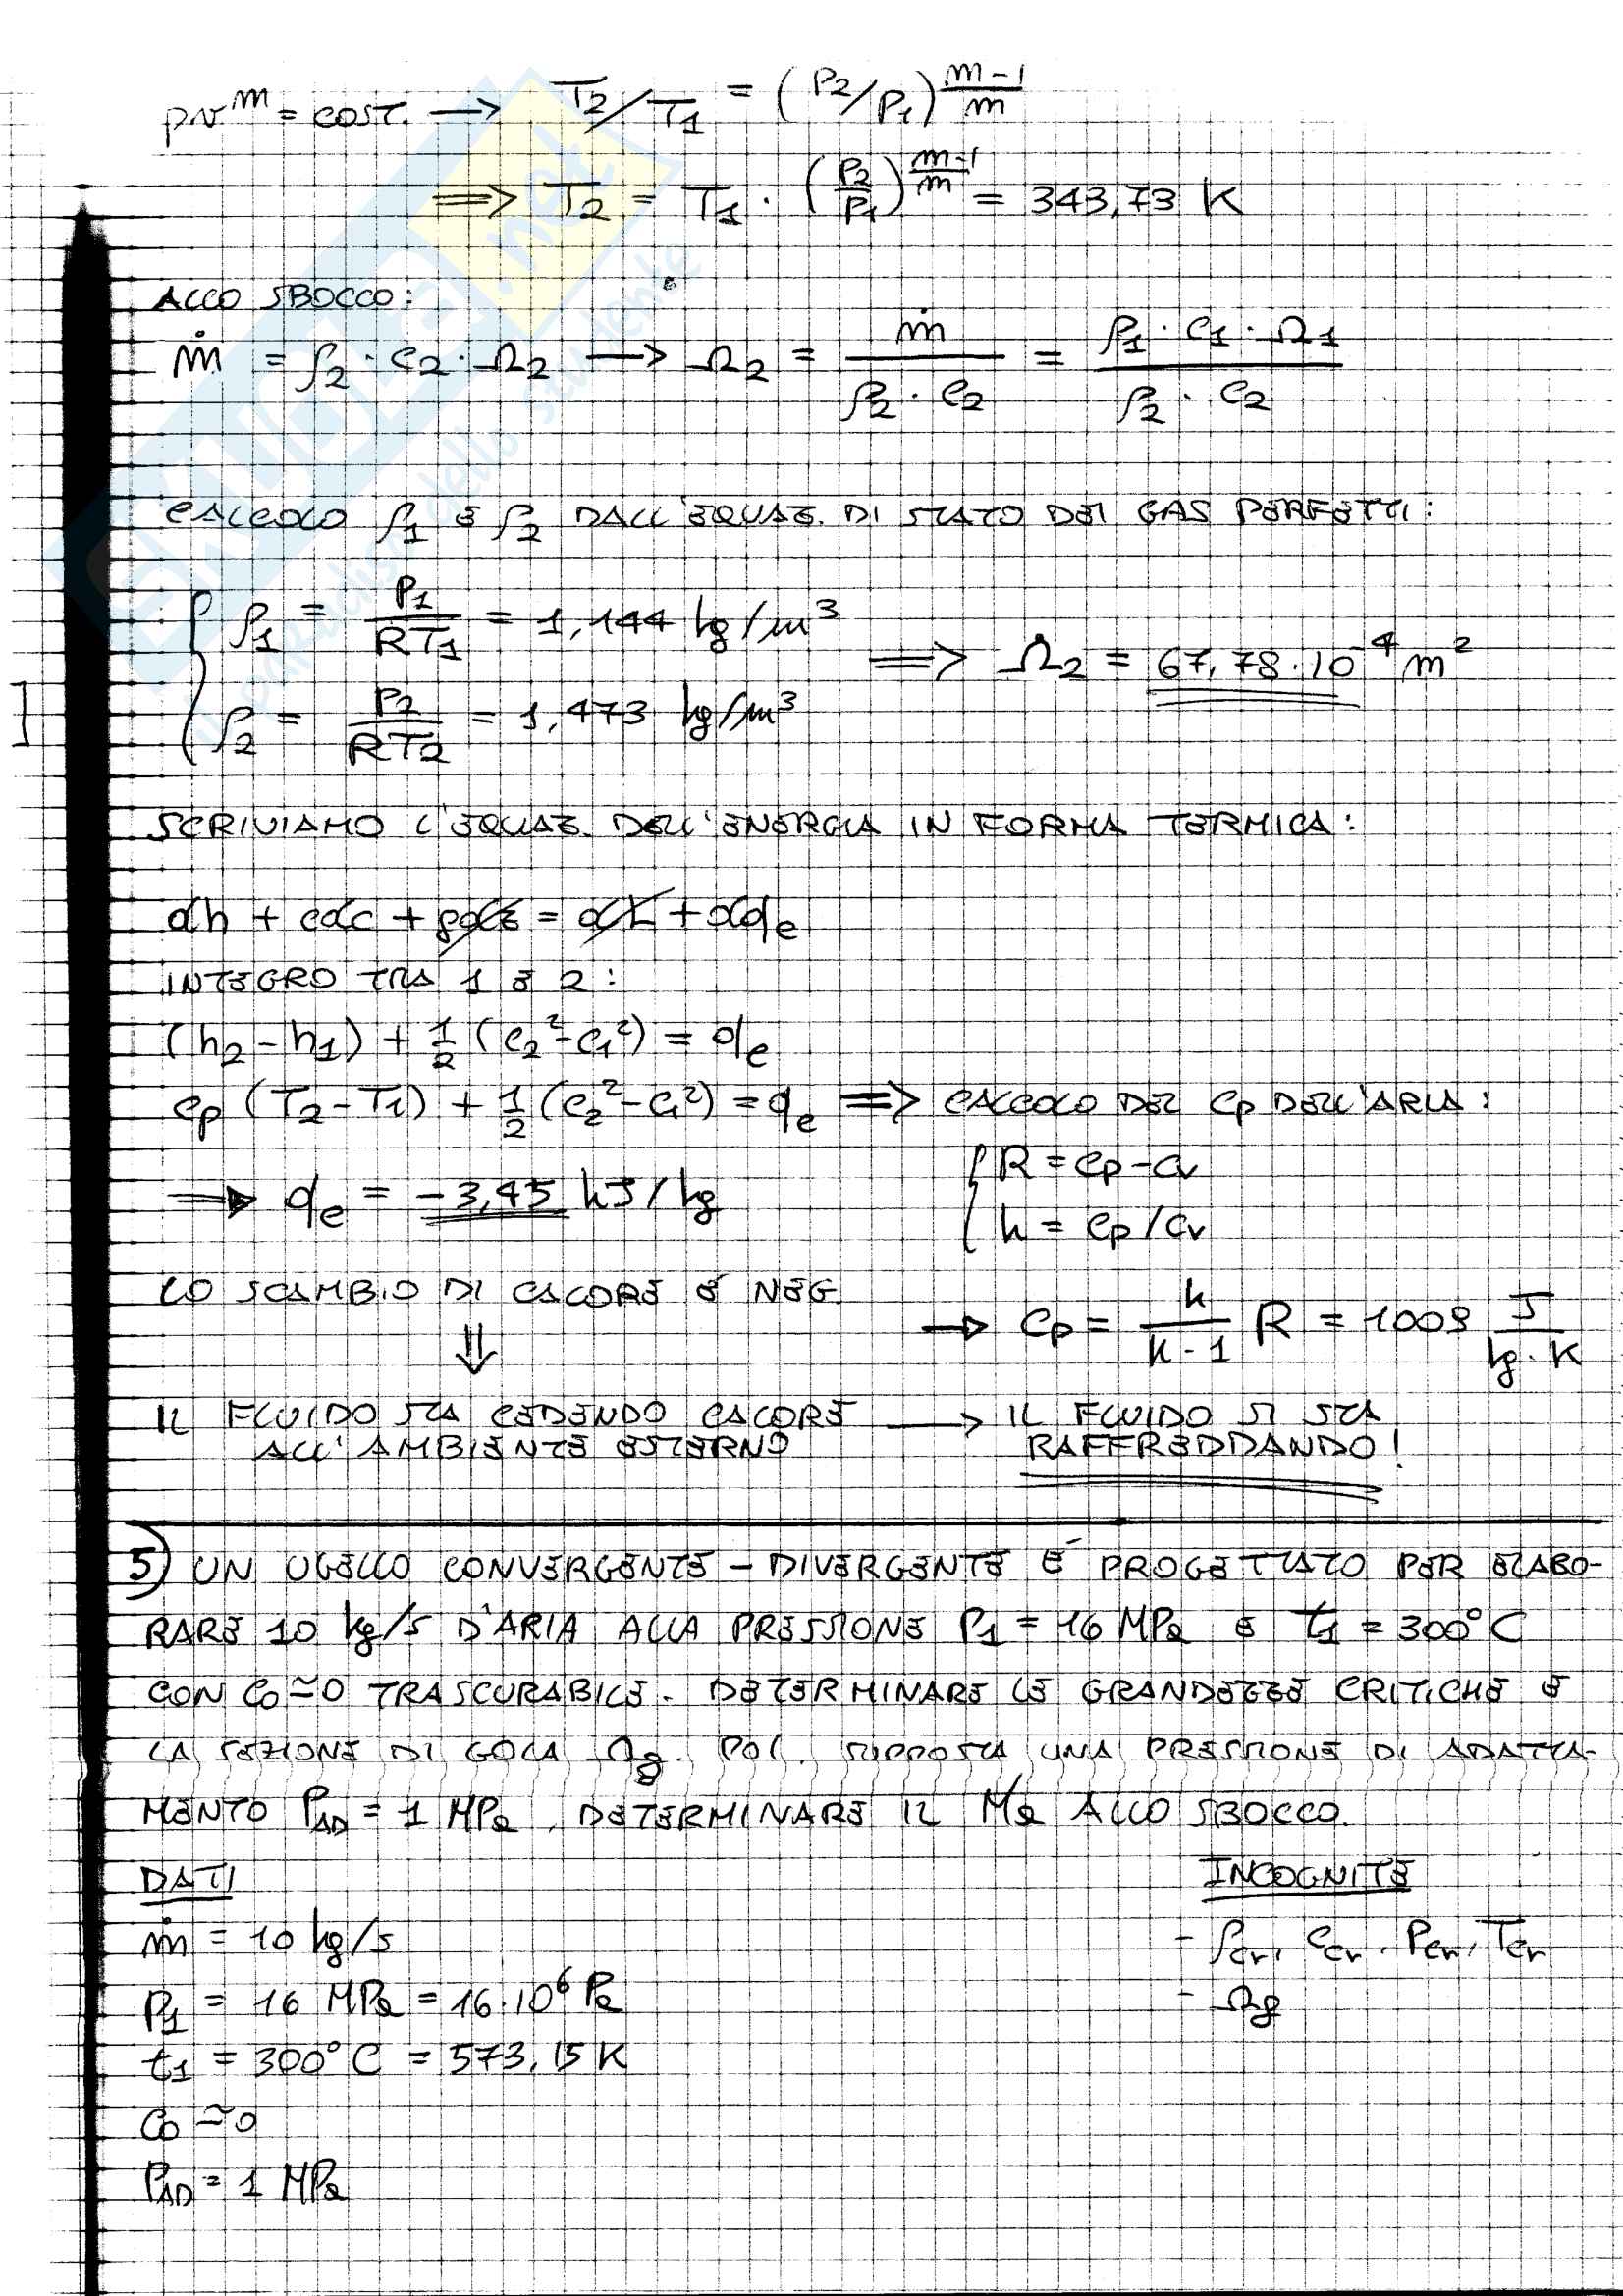 pv^m = cost. → T2/T1 = (P2/P1)^((m-1)/m)
⇒ T2 = T1 · (P2/P1)^((m-1)/m) = 343,73 K
ALLO SBOCCO:
ṁ = ρ2 · c2 · Ω2 → Ω2 = ṁ / (ρ2 · c2) = (ρ1 · c1 · Ω1) / (ρ2 · c2)
CALCOLO ρ1 E ρ2 DALL'EQUAZ. DI STATO DEI GAS PERFETTI:
ρ1 = P1 / (RT1) = 1,144 kg/m³
⇒ Ω2 = 67,78 · 10⁻⁴ m²
ρ2 = P2 / (RT2) = 1,473 kg/m³
SCRIVIAMO L'EQUAZ. DELL'ENERGIA IN FORMA TERMICA:
dh + cdc + gdz = dL + dqe
INTEGRO TRA 1 E 2:
(h2 - h1) + 1/2 (c2² - c1²) = qe
cp (T2 - T1) + 1/2 (c2² - c1²) = qe ⇒ CALCOLO DEL cp DELL'ARIA:
R = cp - cv
⇒ qe = -3,45 kJ/kg
k = cp/cv
LO SCAMBIO DI CALORE È NEG.
⇓
→ cp = k/(k-1) R = 1008 J/(kg · K)
IL FLUIDO STA CEDENDO CALORE → IL FLUIDO SI STA
ALL'AMBIENTE ESTERNO RAFFREDDANDO!
5) UN UGELLO CONVERGENTE - DIVERGENTE È PROGETTATO PER ELABO-
RARE 10 kg/s D'ARIA ALLA PRESSIONE P1 = 16 MPa E t1 = 300°C
CON C0 ≃ 0 TRASCURABILE. DETERMINARE LE GRANDEZZE CRITICHE E
LA SEZIONE DI GOLA Ωg. POI, SUPPOSTA UNA PRESSIONE DI ADATTA-
MENTO PAD = 1 MPa, DETERMINARE IL Ma ALLO SBOCCO.
DATI INCOGNITE
ṁ = 10 kg/s - ρcr, ccr, Pcr, Tcr
P1 = 16 MPa = 16·10⁶ Pa - Ωg
t1 = 300°C = 573,15 K
C0 ≃ 0
PAD = 1 MPa